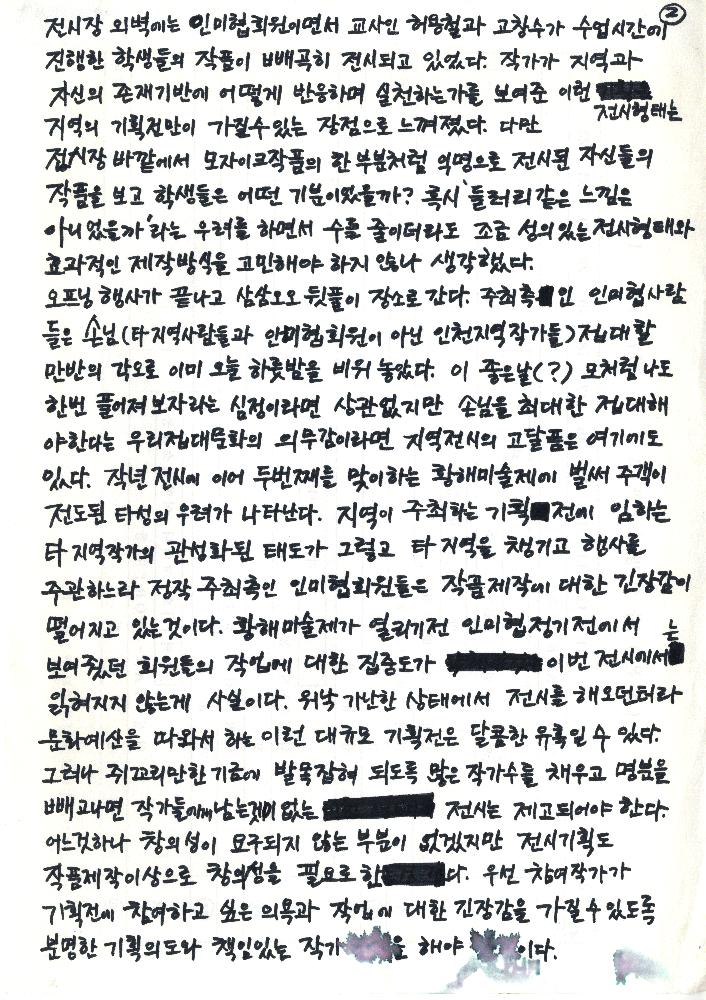 ②
전시장 외벽에는 인미협회원이면서 교사인 허용철과 고창수가 수업시간에
진행한 학생들의 작품이 빼곡히 전시되고 있었다. 작가가 지역과
자신의 존재기반에 어떻게 반응하며 실천하는가를 보여준 이런
전시형태는
지역의 기획전만이 가질수있는 장점으로 느껴졌다. 다만
전시장 바깥에서 모자이크작품의 한부분처럼 익명으로 전시된 자신들의
작품을 보고 학생들은 어떤 기분이었을까? 혹시 '들러리같은 느낌은
아니었을까'라는 우려를 하면서 수를 줄이더라도 조금 성의있는 전시형태와
효과적인 제작방식을 고민해야 하지 않나 생각했다.
오프닝 행사가 끝나고 삼삼오오 뒷풀이 장소로 간다. 주최측인 인미협사람
들은 손님(타지역사람들과 인미협회원이 아닌 인천지역작가들)접대할
만반의 각오로 이미 오늘 하룻밤을 비워 놓았다. 이 좋은날(?) 모처럼 나도
한번 풀어져보자라는 심정이라면 상관없지만 손님을 최대한 접대해
야한다는 우리접대문화의 의무감이라면 지역전시의 고달픔은 여기에도
있다. 작년전시에 이어 두번째를 맞이하는 황해미술제에 벌써 주객이
전도된 타성의 우려가 나타난다. 지역이 주최하는 기획전에 임하는
타지역작가의 관성화된 태도가 그렇고 타지역을 챙기고 행사를
주관하느라 정작 주최측인 인미협회원들은 작품제작에 대한 긴장감이
떨어지고 있는것이다. 황해미술제가 열리기전 인미협정기전에서
보여줬던 회원들의 작업에 대한 집중도가 이번 전시에서는
읽혀지지 않는게 사실이다. 워낙 가난한 상태에서 전시를 해오던터라
문화예산을 따와서 하는 이런 대규모 기획전은 달콤한 유혹일 수 있다.
그러나 쥐꼬리만한 기금에 발목잡혀 되도록 많은 작가수를 채우고 명분을
빼고나면 작가들에게 남는것이 없는 전시는 제고되어야 한다.
어느것하나 창의성이 요구되지 않는 부분이 없겠지만 전시기획도
작품제작이상으로 창의성을 필요로 한다. 우선 참여작가가
기획전에 참여하고 싶은 의욕과 작업에 대한 긴장감을 가질수있도록
분명한 기획의도와 책임있는 작가 을 해야 이다.